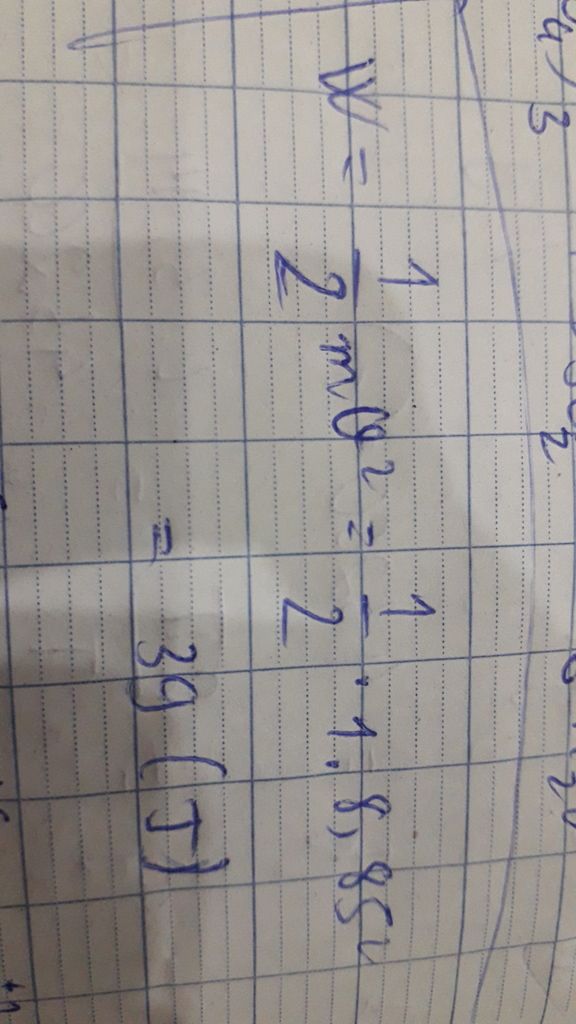 W = 1/2 mv² = 1/2 . 1 . 8,85²
= 39 (J)